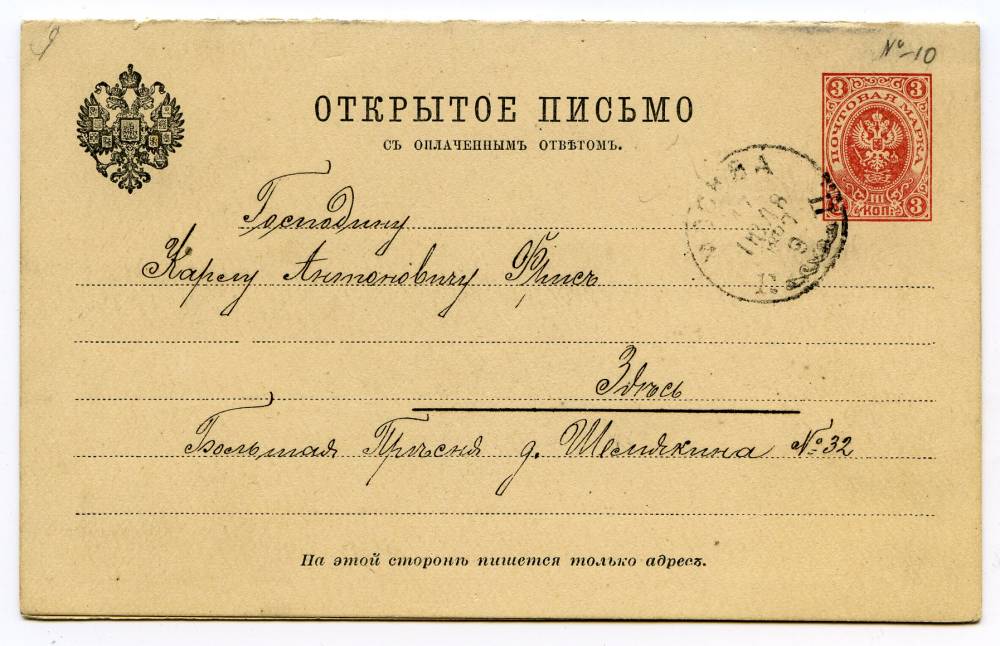 №-10
ОТКРЫТОЕ ПИСЬМО
СЪ ОПЛАЧЕННЫМЪ ОТВѢТОМЪ.
3 3
ПОЧТОВАЯ МАРКА
3 КОП. 3
МОСКВА
Господину
Карлу Антоновичу Фрисъ
Здѣсь
Большая Прѣсня д. Шемякина № 32
На этой сторонѣ пишется только адресъ.